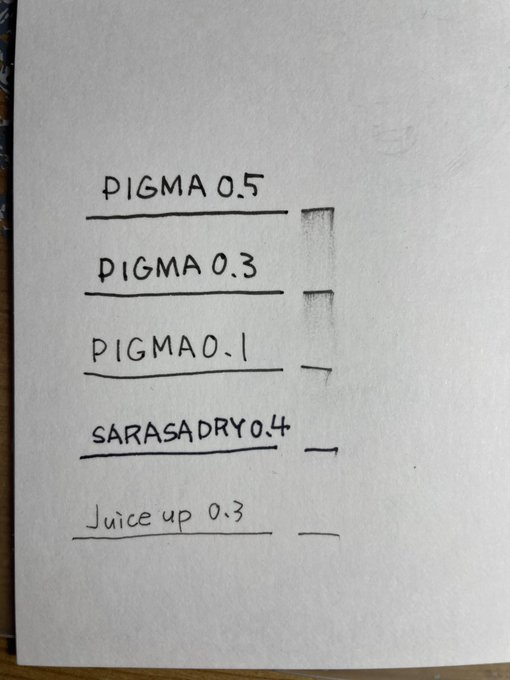 PIGMA 0.5
PIGMA 0.3
PIGMA 0.1
SARASADRY 0.4
Juice up 0.3